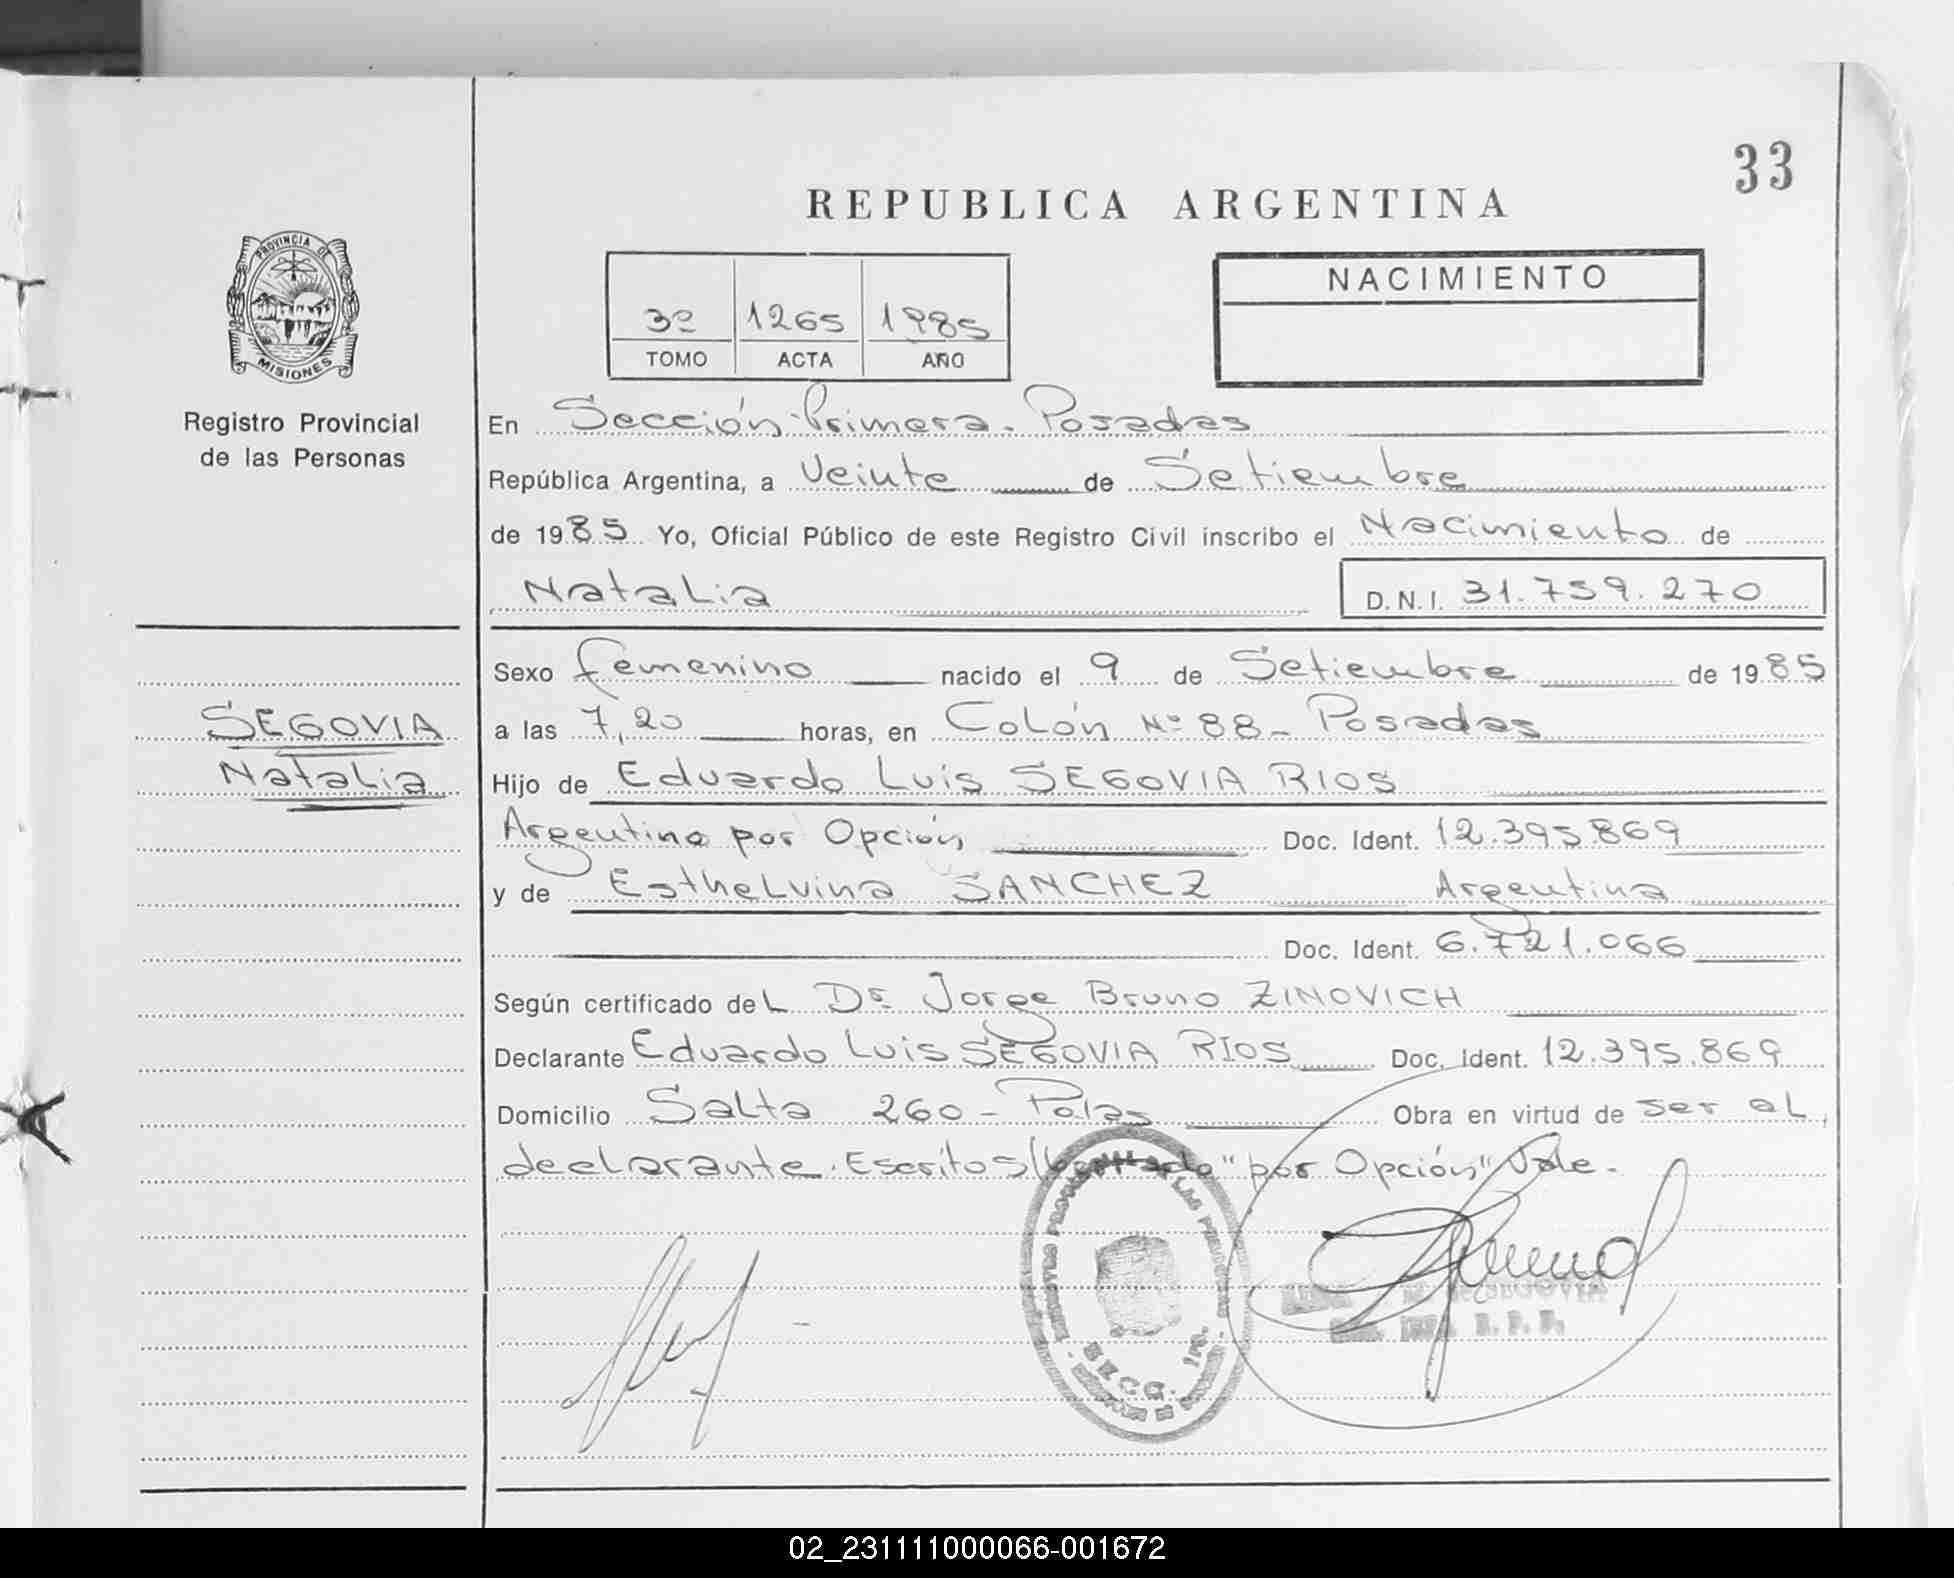 33
REPUBLICA ARGENTINA
PROVINCIA DE
MISIONES
Registro Provincial
de las Personas
3º 1265 1985
TOMO ACTA AÑO
NACIMIENTO
En Sección Primera - Posadas
República Argentina, a Veinte de Setiembre
de 1985 Yo, Oficial Público de este Registro Civil inscribo el Nacimiento de
Natalia D.N.I. 31.759.270
Sexo femenino nacido el 9 de Setiembre de 1985
SEGOVIA
Natalia
a las 7,20 horas, en Colón Nº 88 - Posadas
Hijo de Eduardo Luis SEGOVIA RIOS
Argentino por Opción Doc. Ident. 12.395.869
y de Esthelvina SANCHEZ Argentina
Doc. Ident. 6.721.066
Según certificado del Dr. Jorge Bruno ZINOVICH
Declarante Eduardo Luis SEGOVIA RIOS Doc. Ident. 12.395.869
Domicilio Salta 260 - Pdas Obra en virtud de ser el
declarante. Escritos "por Opción" Vale.
SECC. 1ra.
de SEGOVIA
R. P. P.
02_231111000066-001672